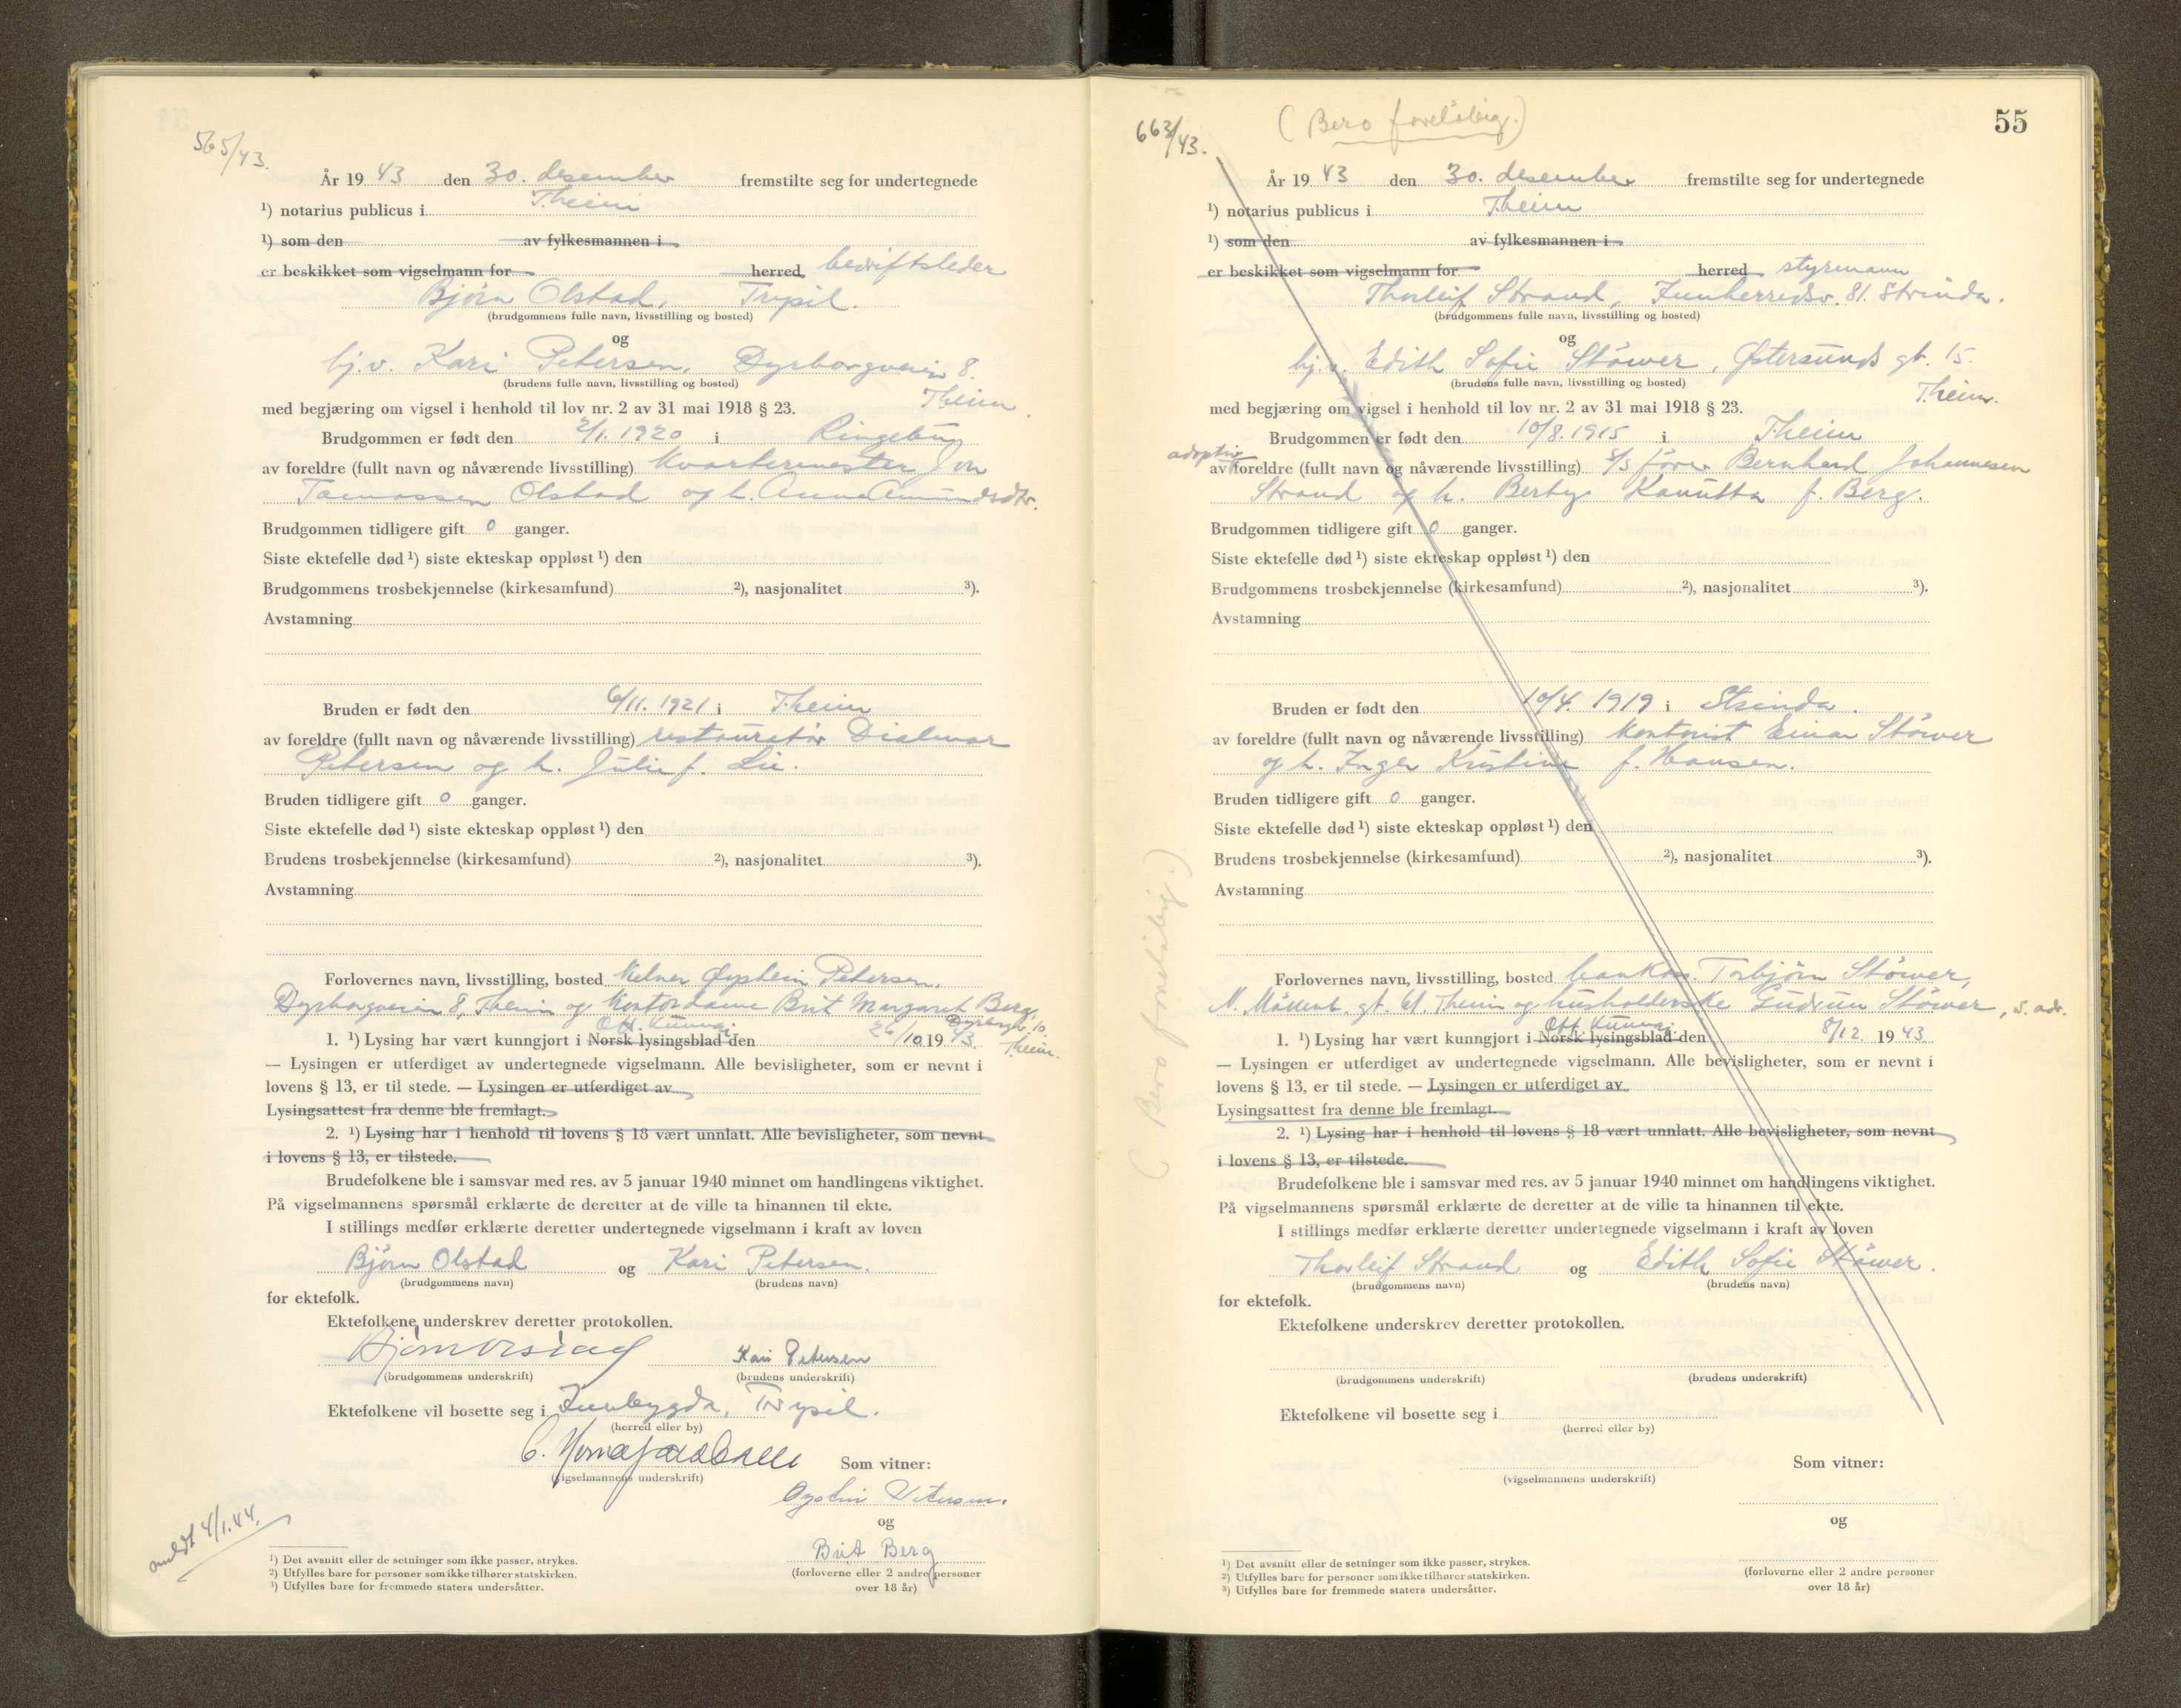 565/43.
År 19 43 den 30. desember fremstilte seg for undertegnede
¹) notarius publicus i Theim
¹) som den av fylkesmannen i
er beskikket som vigselmann for herred bedriftsleder
Bjørn Olstad, Trysil.
(brudgommens fulle navn, livsstilling og bosted)
og
hj.v. Kari Petersen, Dyrborgveien 8.
(brudens fulle navn, livsstilling og bosted)
Theim.
med begjæring om vigsel i henhold til lov nr. 2 av 31 mai 1918 § 23.
Brudgommen er født den 2/1. 1920 i Ringebu
av foreldre (fullt navn og nåværende livsstilling) Kvartermester Jon
Tomassen Olstad og h. Anna Amundsdtr.
Brudgommen tidligere gift 0 ganger.
Siste ektefelle død ¹) siste ekteskap oppløst ¹) den
Brudgommens trosbekjennelse (kirkesamfund) ²), nasjonalitet ³).
Avstamning
Bruden er født den 6/11. 1921 i Theim
av foreldre (fullt navn og nåværende livsstilling) restauratør Dialmar
Petersen og h. Julie f. Lie.
Bruden tidligere gift 0 ganger.
Siste ektefelle død ¹) siste ekteskap oppløst ¹) den
Brudens trosbekjennelse (kirkesamfund) ²), nasjonalitet ³).
Avstamning
Forlovernes navn, livsstilling, bosted kelner Øystein Petersen,
Dyrborgveien 8, Theim og kontordame Brit Margaret Berg,
Dyrborgv. 10
Theim.
Off. Kunngj.
1. ¹) Lysing har vært kunngjort i Norsk lysingsblad den 26/10 19 43
— Lysingen er utferdiget av undertegnede vigselmann. Alle bevisligheter, som er nevnt i
lovens § 13, er til stede. — Lysingen er utferdiget av
Lysingsattest fra denne ble fremlagt.
2. ¹) Lysing har i henhold til lovens § 18 vært unnlatt. Alle bevisligheter, som nevnt
i lovens § 13, er tilstede.
Brudefolkene ble i samsvar med res. av 5 januar 1940 minnet om handlingens viktighet.
På vigselmannens spørsmål erklærte de deretter at de ville ta hinannen til ekte.
I stillings medfør erklærte deretter undertegnede vigselmann i kraft av loven
Bjørn Olstad og Kari Petersen.
(brudgommens navn) (brudens navn)
for ektefolk.
Ektefolkene underskrev deretter protokollen.
Bjørn Olstad Kari Petersen
(brudgommens underskrift) (brudens underskrift)
Ektefolkene vil bosette seg i Innbygda, Trysil.
(herred eller by)
Som vitner:
(vigselmannens underskrift)
Øystein Petersen.
og
Brit Berg
(forloverne eller 2 andre personer
over 18 år)
meldt 4/1.44.
¹) Det avsnitt eller de setninger som ikke passer, strykes.
²) Utfylles bare for personer som ikke tilhører statskirken.
³) Utfylles bare for fremmede staters undersåtter.
55
663/43.
(Bero foreløbig.)
År 19 43 den 30. desember fremstilte seg for undertegnede
¹) notarius publicus i Theim
¹) som den av fylkesmannen i
er beskikket som vigselmann for herred styrmann
Thorleif Strand, Innherredsv. 81. Strinda.
(brudgommens fulle navn, livsstilling og bosted)
og
hj.v. Edith Sofie Støwer, Østersunds gt. 15.
(brudens fulle navn, livsstilling og bosted)
Theim.
med begjæring om vigsel i henhold til lov nr. 2 av 31 mai 1918 § 23.
Brudgommen er født den 10/8. 1915 i Theim
adoptiv
av foreldre (fullt navn og nåværende livsstilling) s/s fører Bernhard Johannesen
Strand og h. Bertye Kanutta f. Berg.
Brudgommen tidligere gift 0 ganger.
Siste ektefelle død ¹) siste ekteskap oppløst ¹) den
Brudgommens trosbekjennelse (kirkesamfund) ²), nasjonalitet ³).
Avstamning
Bruden er født den 10/4. 1919 i Strinda.
av foreldre (fullt navn og nåværende livsstilling) kontorist Einar Støwer
og h. Inger Kristine f. Hansen.
Bruden tidligere gift 0 ganger.
Siste ektefelle død ¹) siste ekteskap oppløst ¹) den
Brudens trosbekjennelse (kirkesamfund) ²), nasjonalitet ³).
Avstamning
(Bero foreløbig.)
Forlovernes navn, livsstilling, bosted bankass. Torbjørn Støwer,
N. Møllenb. gt. 61. Theim og husholderske Gudrun Støwer, s. adr.
Off. Kunngj.
1. ¹) Lysing har vært kunngjort i Norsk lysingsblad den 8/12. 19 43
— Lysingen er utferdiget av undertegnede vigselmann. Alle bevisligheter, som er nevnt i
lovens § 13, er til stede. — Lysingen er utferdiget av
Lysingsattest fra denne ble fremlagt.
2. ¹) Lysing har i henhold til lovens § 18 vært unnlatt. Alle bevisligheter, som nevnt
i lovens § 13, er tilstede.
Brudefolkene ble i samsvar med res. av 5 januar 1940 minnet om handlingens viktighet.
På vigselmannens spørsmål erklærte de deretter at de ville ta hinannen til ekte.
I stillings medfør erklærte deretter undertegnede vigselmann i kraft av loven
Thorleif Strand og Edith Sofie Støwer.
(brudgommens navn) (brudens navn)
for ektefolk.
Ektefolkene underskrev deretter protokollen.
(brudgommens underskrift) (brudens underskrift)
Ektefolkene vil bosette seg i
(herred eller by)
Som vitner:
(vigselmannens underskrift)
og
(forloverne eller 2 andre personer
over 18 år)
¹) Det avsnitt eller de setninger som ikke passer, strykes.
²) Utfylles bare for personer som ikke tilhører statskirken.
³) Utfylles bare for fremmede staters undersåtter.